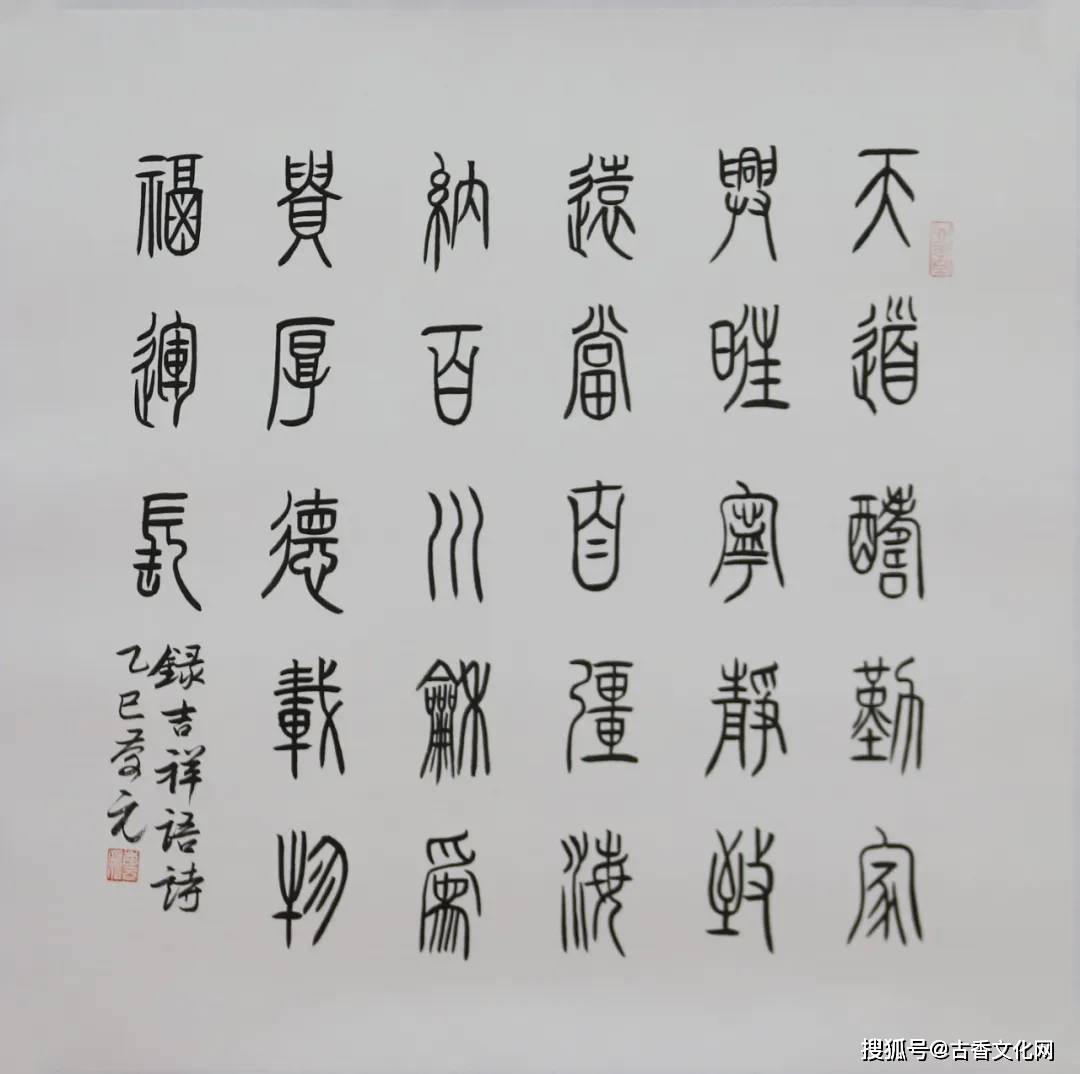 天道醻勤家
興旺寧靜致
遠當自彊海
納百川龢爲
貴厚德載物
福運長
錄吉祥語詩
乙巳元
搜狐号@古香文化网